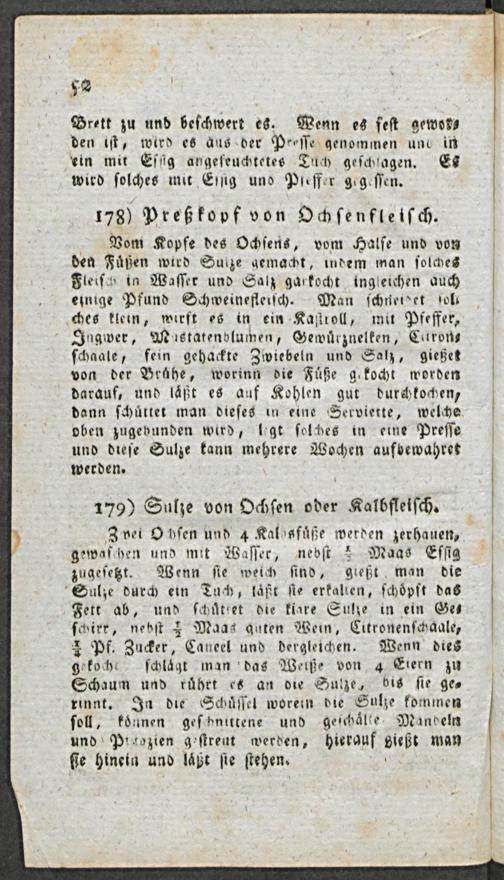 52
Brett zu und beschwert es. Wenn es fest gewor⸗
den ist, wird es aus der Presse genommen und in
ein mit Essig angefeuchtetes Tuch geschlagen. Es
wird solches mit Essig und Pfeffer gegessen.
178) Preßkopf von Ochsenfleisch.
Vom Kopfe des Ochsens, vom Halse und von
den Füßen wird Sulze gemacht, indem man solches
Fleisch in Wasser und Salz garkocht ingleichen auch
einige Pfund Schweinefleisch. Man schneidet sol⸗
ches klein, wirft es in ein Kastroll, mit Pfeffer,
Ingwer, Muskatenblumen, Gewürznelken, Citron⸗
schaale, fein gehackte Zwiebeln und Salz, gießet
von der Brühe, worinn die Füße gekocht worden
darauf, und läßt es auf Kohlen gut durchkochen,
dann schüttet man dieses in eine Serviette, welche
oben zugebunden wird, legt solches in eine Presse
und diese Sulze kann mehrere Wochen aufbewahret
werden.
179) Sulze von Ochsen oder Kalbfleisch.
Zwei Ochsen und 4 Kalbsfüße werden zerhauen,
gewaschen und mit Wasser, nebst ½ Maas Essig
zugesetzt. Wenn sie weich sind, gießt man die
Sulze durch ein Tuch, läßt sie erkalten, schöpft das
Fett ab, und schüttet die klare Sulze in ein Ge⸗
schirr, nebst ½ Maas guten Wein, Citronenschaale,
¼ Pf. Zucker, Caneel und dergleichen. Wenn dies
gekocht schlägt man das Weiße von 4 Eiern zu
Schaum und rührt es an die Sulze, bis sie ge⸗
rinnt. In die Schüssel worein die Sulze kommen
soll, können geschnittene und geschälte Mandeln
und Pistazien gestreut werden, hierauf gießt man
sie hinein und läßt sie stehen.